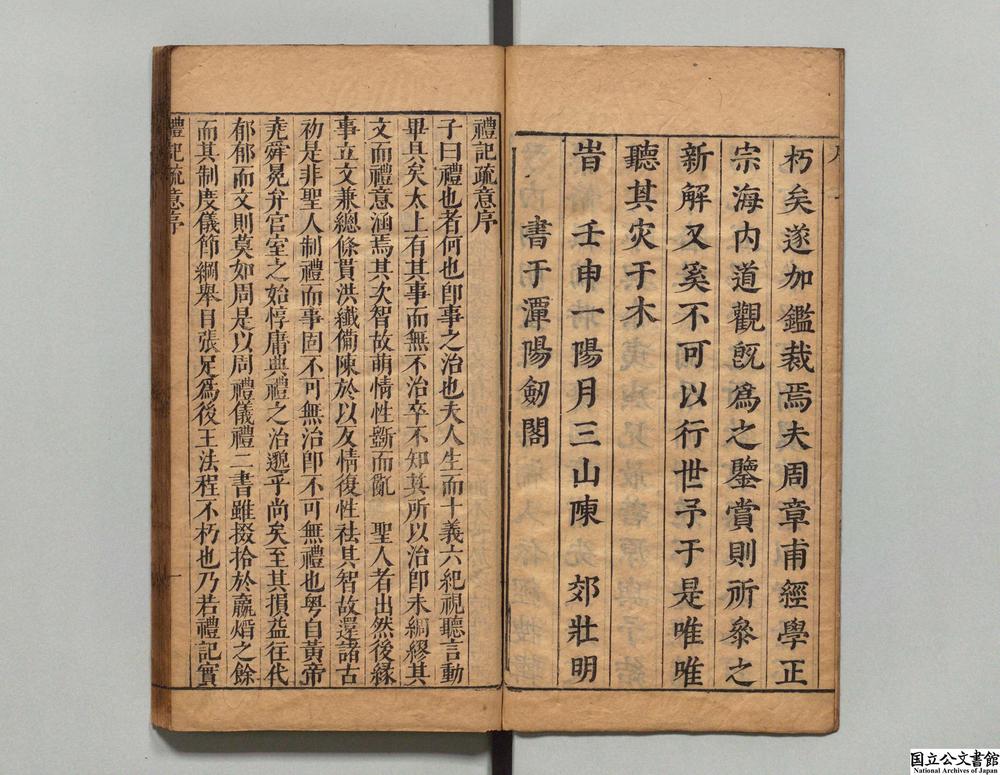 朽矣遂加鑑裁焉夫周章甫經學正
宗海内道觀旣爲之鑒賞則所叅之
新解又奚不可以行世予于是唯唯
聽其灾于木
旹壬申一陽月三山陳 郊壯明
書于潭陽劒閣
禮記疏意序
子曰禮也者何也卽事之治也夫人生而十義六紀視聽言動
畢具矣太上有其事而無不治卒不知其所以治卽未綢繆其
文而禮意涵焉其次智故萌情性斲而亂 聖人者出然後緣
事立文兼總條貫洪纎備陳於以反情復性祛其智故還諸古
初是非聖人制禮而事固不可無治卽不可無禮也粤自黃帝
堯舜冕弁宫室之始惇庸典禮之治邈乎尚矣至其損益往代
郁郁而文則莫如周是以周禮儀禮二書雖掇拾於嬴燼之餘
而其制度儀節綱舉目張足爲後王法程不朽也乃若禮記實
禮記疏意序
一
国立公文書館
National Archives of Japan